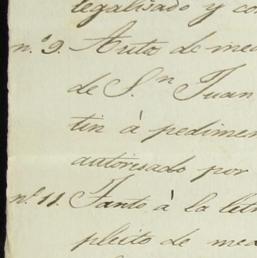 legalisado y co
n.º 9. Autos de me
de S.n Juan
tin à pedimen
autorisado por
n.º 11. Tanto, à la letr
pleito de med